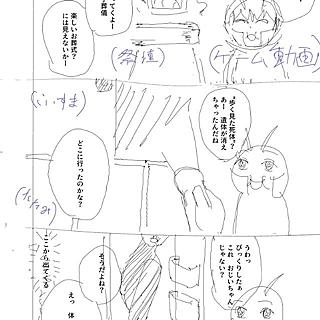 てくよー
葬儀
楽しいお葬式？
には見えないかー
祭壇
(ゲーム動画)
(ふすま)
"歩く見た死体"？
あー 遺体が消え
ちゃったんだね
どこに行ったのかな？
(たたみ)
うわっ
びっくりしたぁ
これ おじいちゃん
じゃない？
そうだよね？
えっ 体
ここから出てくる